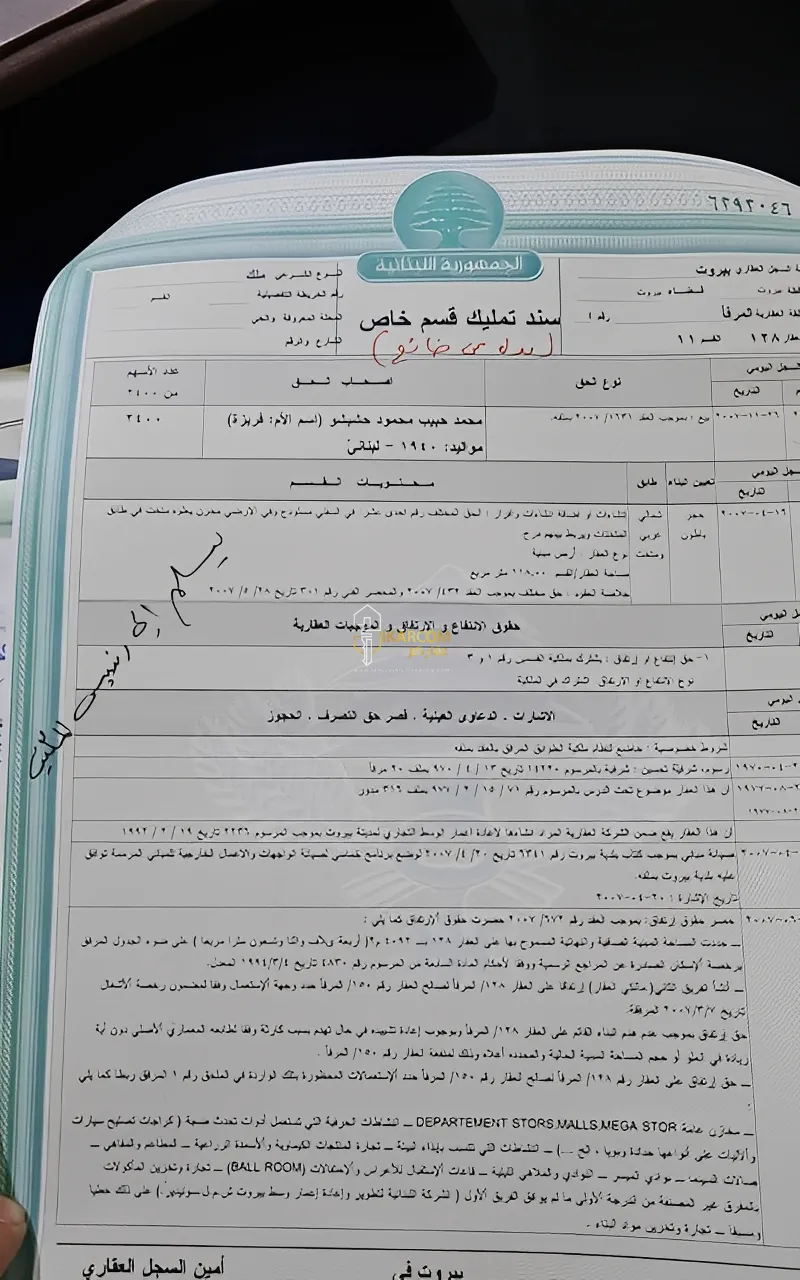 ٦٢٩٢٠٤٦
الجمهورية اللبنانية
السجل العقاري بيروت
بيروت
قضاء بيروت
العقارية المرفأ
رقم ١
١٢٨ القسم ١١
النوع الشرعي ملك
رقم الخريطة التفصيلية
القسم
المحلة المعروفة والحي
الشارع والرقم
سند تمليك قسم خاص
(بدل عن ضائع)
اليومي
التاريخ
نوع الحق
اصحاب الحق
عدد الأسهم
من ٢٤٠٠
٢٠٠٧-١١-٢٦
بيع : بموجب العقد ١٦٣١/ ٢٠٠٧ بملفه.
محمد حبيب محمود حشيشو (اسم الأم: فريزة)
مواليد: ١٩٤٠ - لبناني
٢٤٠٠
اليومي
التاريخ
تعيين البناء
طابق
محتويات القسم
٢٠٠٧-٠٤-١٦
حجر
باطون
شمالي
غربي
ومتخت
إنشاءات او اضافة انشاءات وافراز : الحق المختلف رقم احدى عشر في السفلي مستودع وفي الارضي مخزن يعلوه متخت في طابق
المتختات ويربط بينهم درج
نوع العقار : أرض مبنية
مساحة العقار/القسم ١١٨,٠٠ متر مربع
خلاصة العقود : حق مختلف بموجب العقد ٤٣٢/ ٢٠٠٧ والمحضر الفني رقم ٣٠١ تاريخ ٢٨/ ٥/ ٢٠٠٧
يسلم إلى
اليومي
التاريخ
حقوق الانتفاع و الارتفاق و الموجبات العقارية
KARCOM
١- حق إنتفاع او إرتفاق : يشترك بملكية القسمين رقم ١ و ٣
نوع الانتفاع او الارتفاق اشتراك في الملكية
اليومي
التاريخ
الاشارات . الدعاوى العينية . قصر حق التصرف . الحجوز
شروط خصوصية : خاضع لنظام ملكية الطوابق المرفق بالعقد بملفه
رسوم شرفية تحسين : شرفية بالمرسوم ١٤٢٢٠ تاريخ ١٣ / ٤ / ٩٧٠ بملف ٢٠ مرفأ
أن هذا العقار موضوع تحت الدرس بالمرسوم رقم ٧١/ ١٥ / ٢ / ٩٧٧ بملف ٣١٦ مدور
أن هذا العقار يقع ضمن الشركة العقارية المراد انشاءها لاعادة اعمار الوسط التجاري لمدينة بيروت بموجب المرسوم ٢٢٣٦ تاريخ ١٩ / ٢ / ١٩٩٢
صيانة مباني بموجب كتاب بلدية بيروت رقم ٦٣٤١ تاريخ ٢٠/ ٤/ ٢٠٠٧ لوضع برنامج خماسي لصيانة الواجهات والاعمال الخارجية للمباني المرممة توافق
عليه بلدية بيروت بملفه.
تاريخ الإشارة : ٢٠-٠٤-٢٠٠٧
حصر حقوق إرتفاق: بموجب العقد رقم ٦٧٢/ ٢٠٠٧ حصرت حقوق الارتفاق كما يلي :
ـ حددت المساحة المبنية الصافية والنهائية المسموح بها على العقار ١٢٨ بـ ٤٠٩٢ م٢( أربعة آلاف واثنا وتسعون مترا مربعا ) على ضوء الجدول المرفق
برخصة الإسكان الصادرة عن المراجع الرسمية ووفقا لأحكام المادة السابعة من المرسوم رقم ٤٨٣٠ تاريخ ١٩٩٤/٣/٤ المعدل.
ـ أنشأ الفريق الثاني( مالكي العقار) إرتفاقا على العقار ١٢٨/ المرفأ لصالح العقار رقم ١٥٠/ المرفأ حدد وجهة الإستعمال وفقا لمضمون رخصة الأشغال
تاريخ ٢٠٠٧/٣/٧ المرفقة.
حق إرتفاق بموجب عدم هدم البناء القائم على العقار ١٢٨/ المرفأ وبوجوب إعادة تشييده في حال تهدم بسبب كارثة وفقا لطابعه المعماري الأصلي دون أية
زيادة في العلو أو حجم المساحة المبنية الحالية والمحدده أعلاه وذلك لمنفعة العقار رقم ١٥٠/ المرفأ .
ـ حق إرتفاق على العقار رقم ١٢٨/ المرفأ لصالح العقار رقم ١٥٠/ المرفأ حدد الإستعمالات المحظورة بتلك الواردة في الملحق رقم ١ المرفق ربطا كما يلي
:
ـ مخازن عامة DEPARTEMENT STORS,MALLS,MEGA STOR ـ النشاطات الحرفية التي تستعمل أدوات تحدث ضجة ( كراجات تصليح سيارات
وآليات على أنواعها حدادة وبويا ، الخ ...) ـ النشاطات التي تتسبب بإيذاء البيئة ـ تجارة المنتجات الكيماوية والأسمدة الزراعية ـ المطاعم والمقاهي ـ
صالات السينما ـ نوادي الميسر ـ النوادي والملاهي الليلية ـ قاعات الإستقبال للأعراس والإحتفالات (BALL ROOM) ـ تجارة وتخزين المأكولات
بالمفرق غير المصنفة من الدرجة الأولى ما لم يوافق الفريق الأول ( الشركة اللبنانية لتطوير وإعادة إعمار وسط بيروت ش.م.ل سوليدير.) على ذلك خطيا
ومسبقا ـ تجارة وتخزين مواد البناء .
بيروت في
أمين السجل العقاري